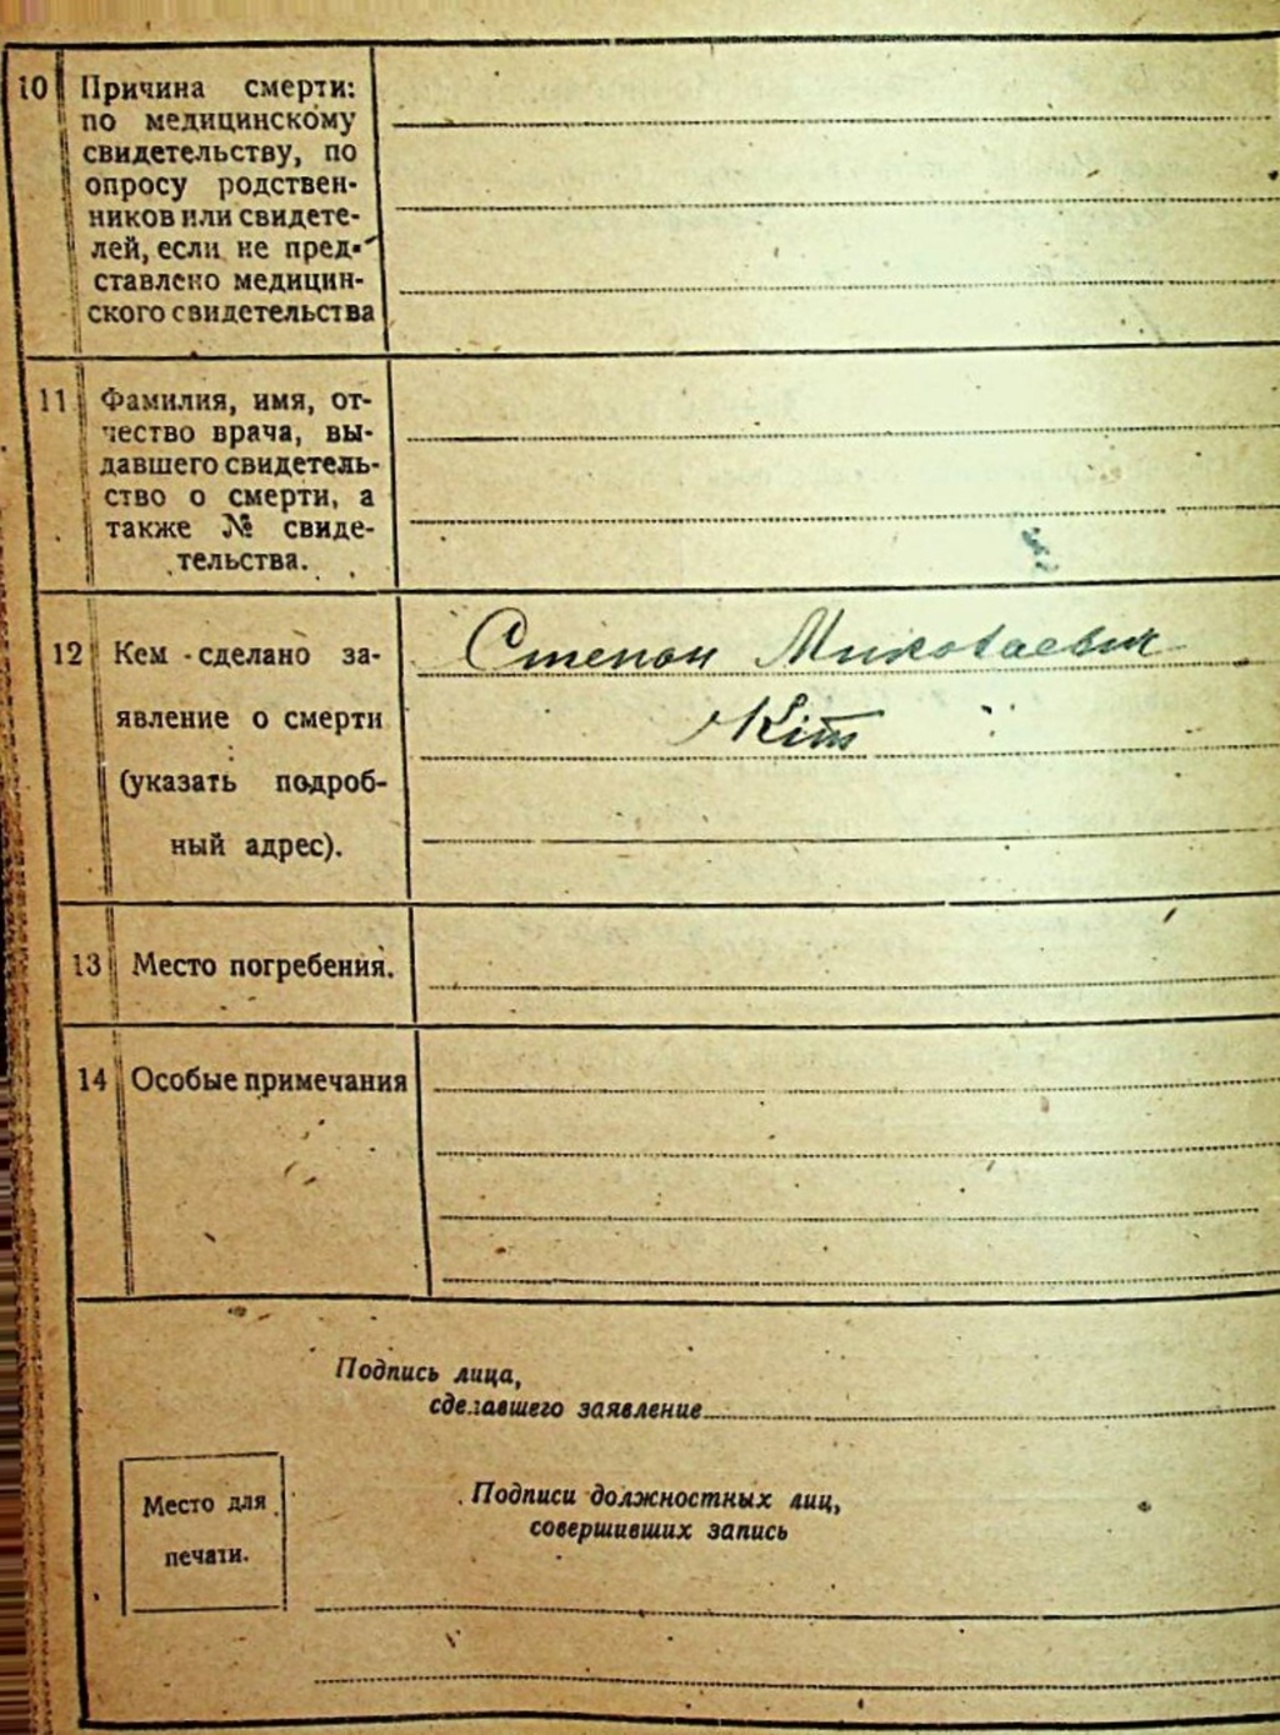 10 Причина смерти:
по медицинскому
свидетельству, по
опросу родствен-
ников или свидете-
лей, если не пред-
ставлено медицин-
ского свидетельства
11 Фамилия, имя, от-
чество врача, вы-
давшего свидетель-
ство о смерти, а
также № свиде-
тельства.
12 Кем сделано за-
явление о смерти
(указать подроб-
ный адрес).
Степан Миколаевич
Кіт
13 Место погребения.
14 Особые примечания
Подпись лица,
сделавшего заявление
Место для
печати.
Подписи должностных лиц,
совершивших запись